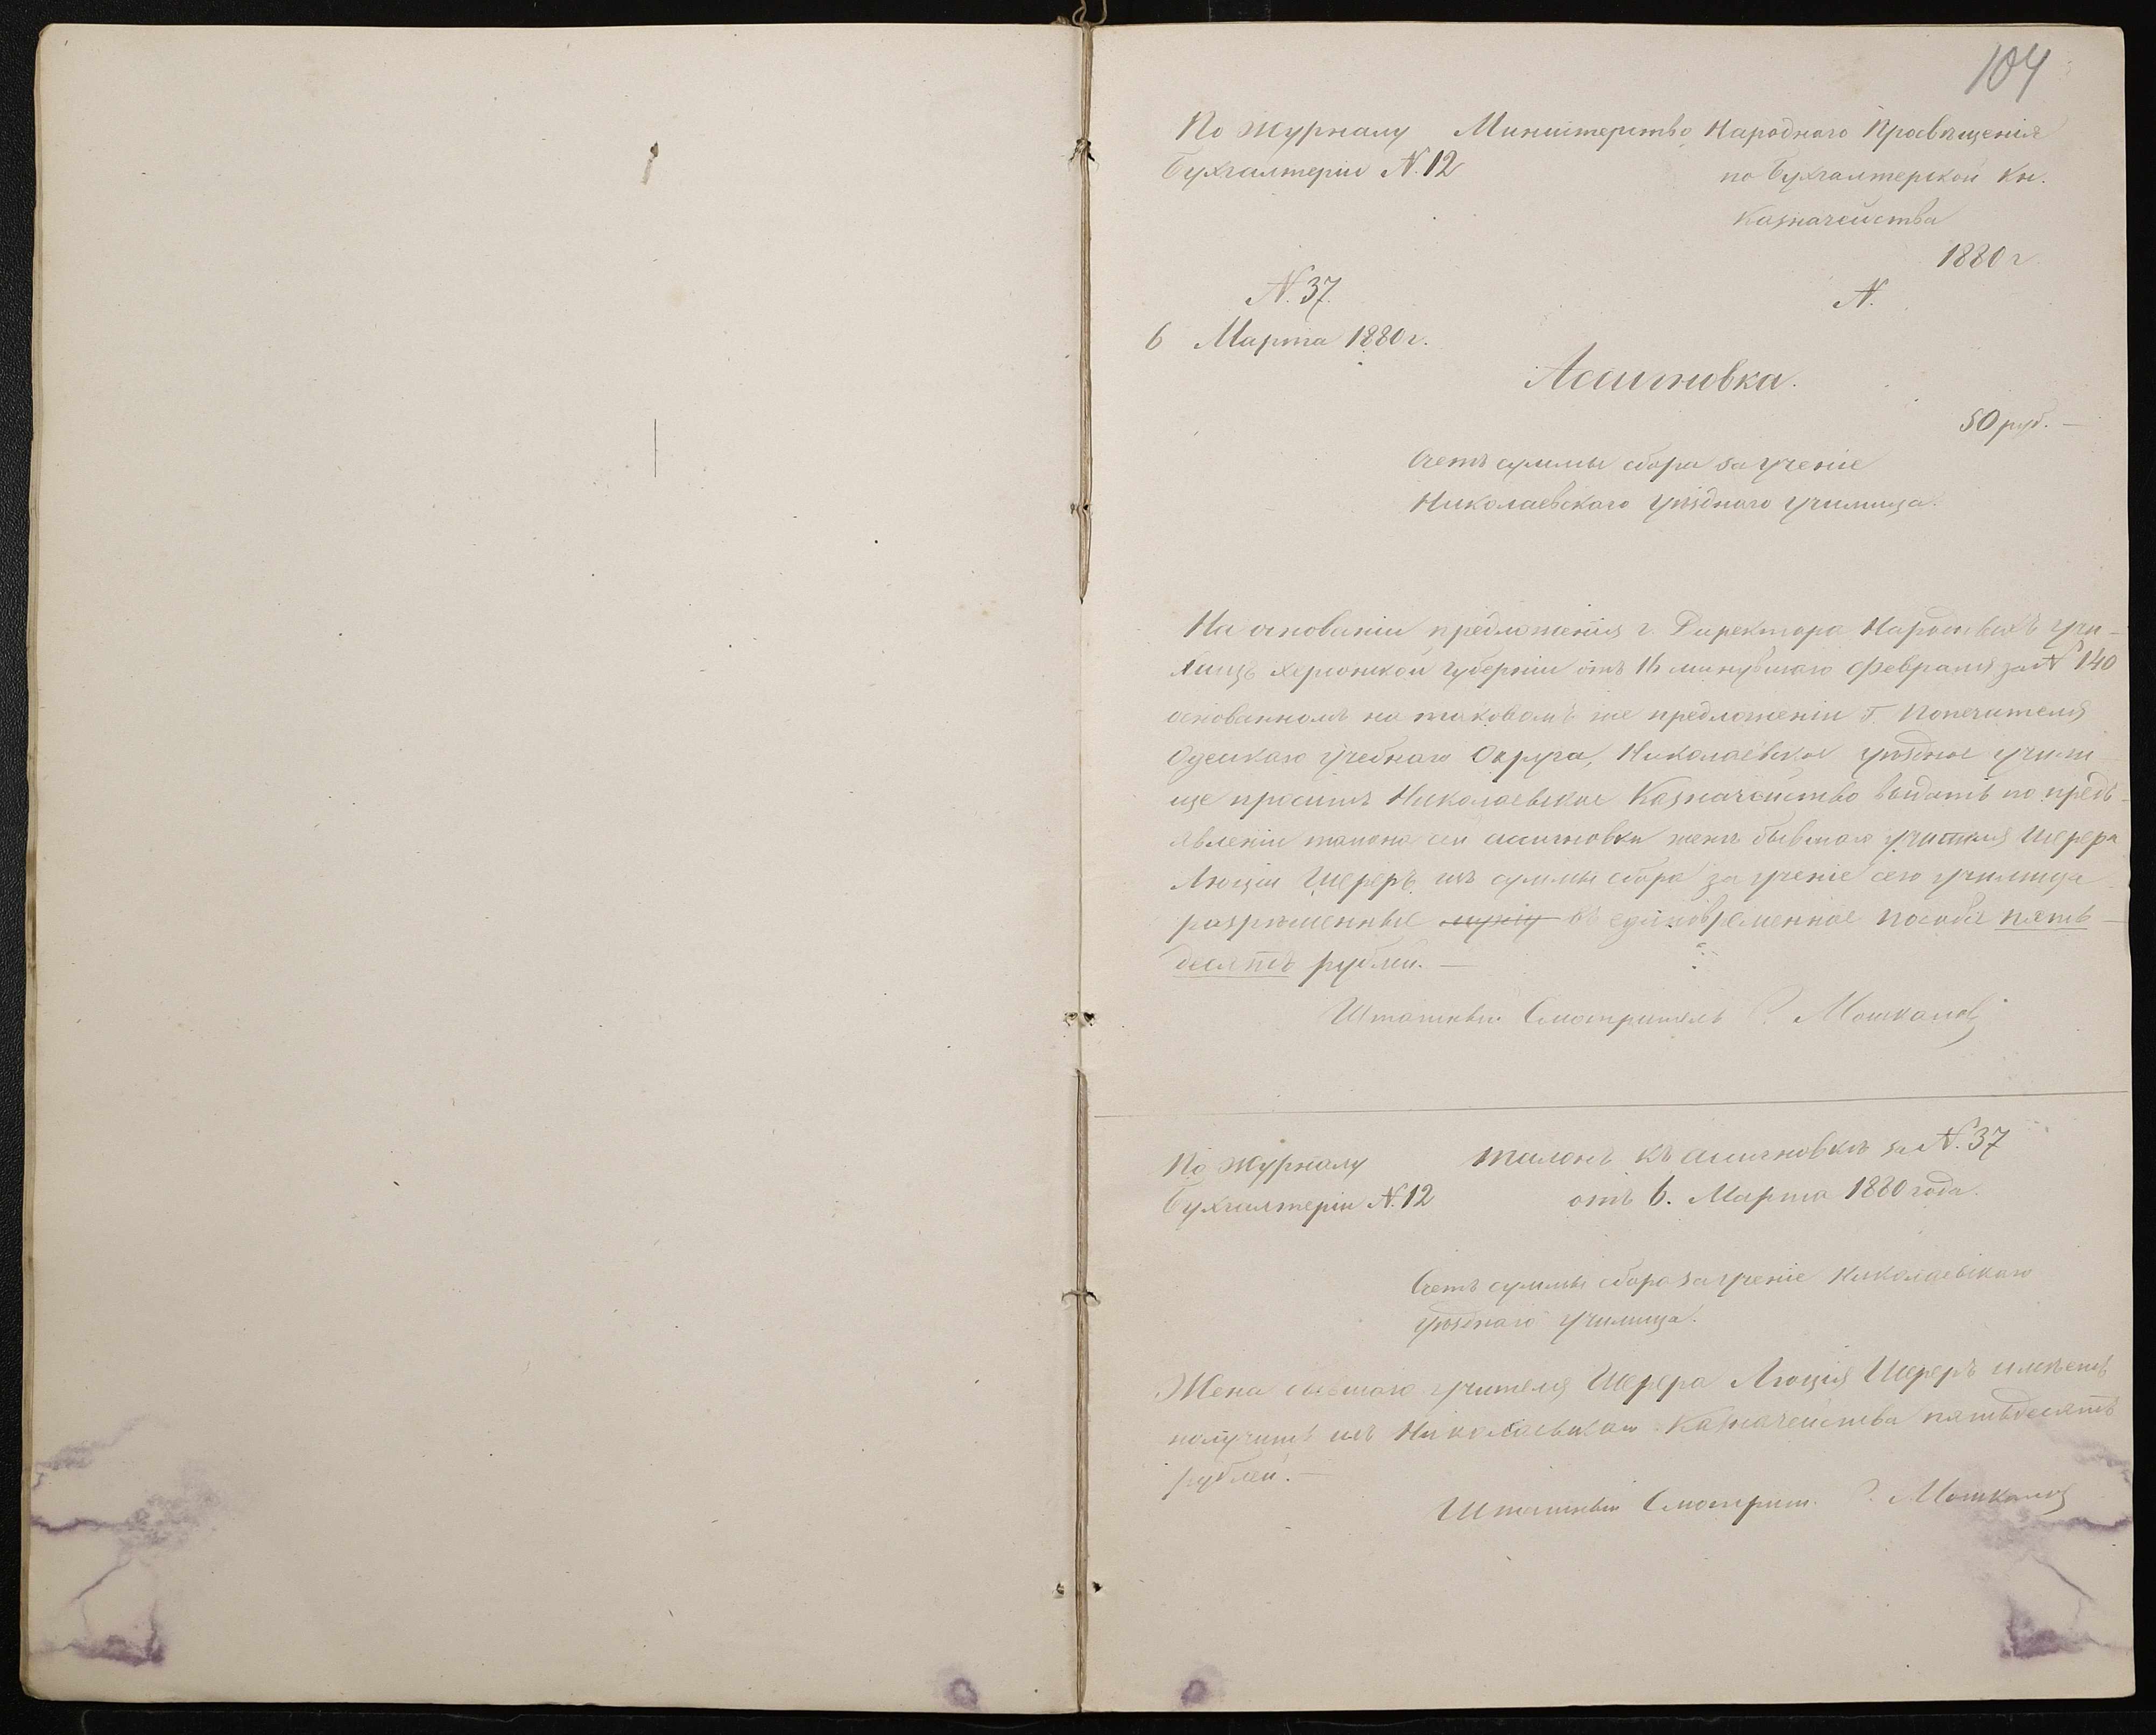 104
По журналу
Бухгалтеріи N. 12
Министерство Народнаго Просвѣщенія
по Бухгалтерской кн.
Казначейства
1880 г
N.
N. 37.
6 Марта 1880 г.
Ассигновка.
50 руб. —
Счетъ суммы сбора за ученіе
Николаевскаго уѣзднаго училища.
На основаніи предложенія г. Директора Народныхъ учи-
лищъ Херсонской губерніи отъ 16 минувшаго Февраля за N 140
основанномъ на таковомъ же предложеніи г. Попечителя
Одесскаго Учебнаго Округа, Николаевское уѣздное учили-
ще проситъ Николаевское Казначейство выдать по предъ-
явленіи талона сей ассигновки женѣ бывшаго учителя Шерера
Люціи Шереръ изъ суммы сбора за ученіе сего училища
разрѣшенные въ единовременное пособіе пять-
десятъ рублей. —
Штатный Смотритель Мошкалов
По журналу
Бухгалтеріи N. 12
Талонъ къ ассигновкѣ за N. 37
отъ 6. Марта 1880 года.
Счетъ суммы сбора за ученіе Николаевскаго
уѣзднаго училища.
Жена бывшаго учителя Шерера Люція Шереръ имѣетъ
получить изъ Николаевскаго Казначейства пятьдесятъ
рублей. —
Штатный Смотрит. Мошкалов